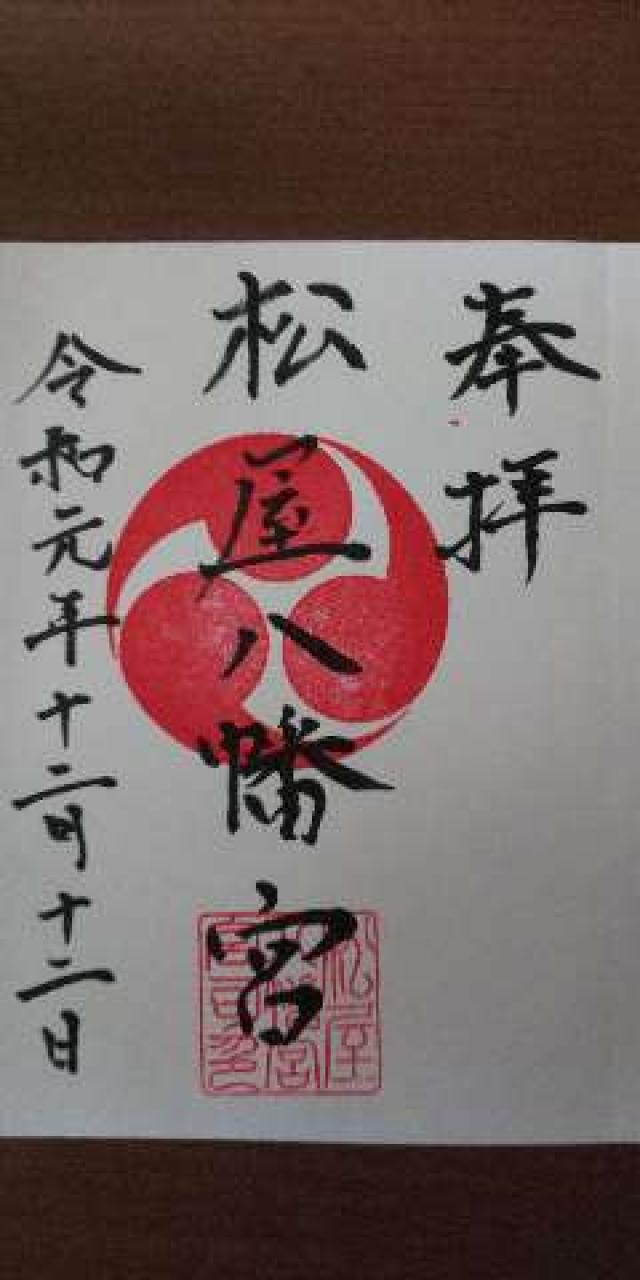 奉拝
松屋八幡宮
令和元年十二月十二日